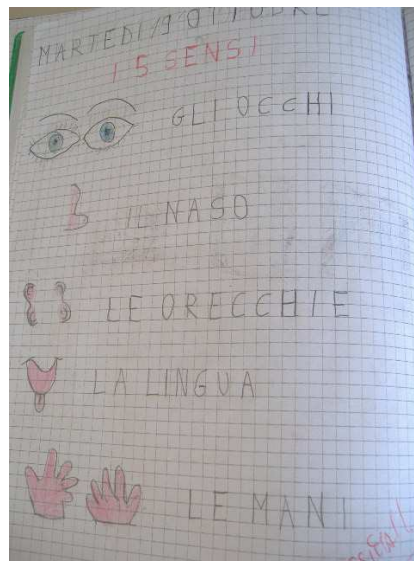 MARTEDI 19 OTTOBRE
I 5 SENSI
GLI OCCHI
IL NASO
LE ORECCHIE
LA LINGUA
LE MANI